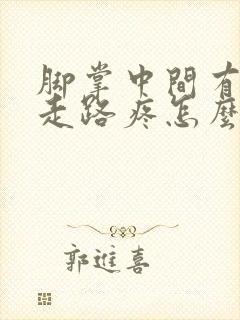 脚掌中間有
走路疼怎麼
郭進喜